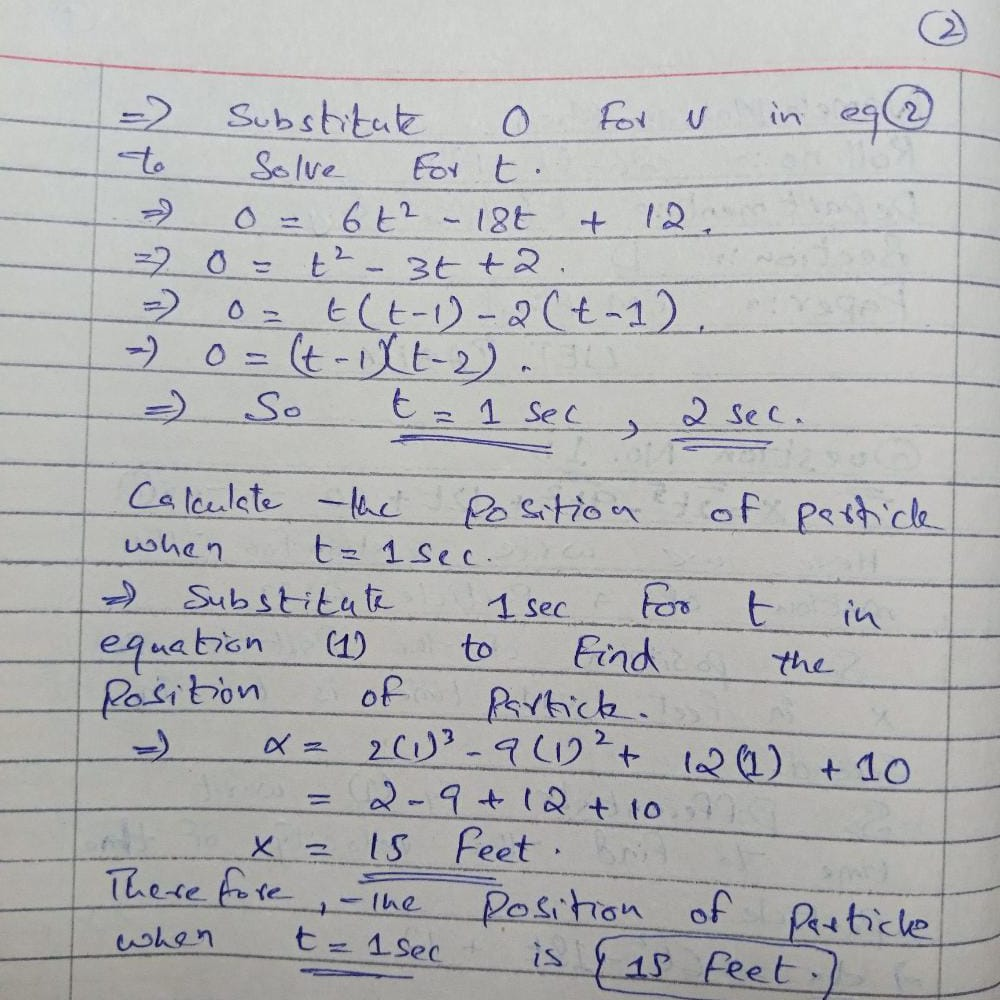 ②
=> Substitute 0 For v in eq ②
to Solve For t.
=> 0 = 6t² - 18t + 12.
=> 0 = t² - 3t + 2.
=> 0 = t(t-1) - 2(t-1).
=> 0 = (t-1)(t-2).
=> So t = 1 sec, 2 sec.
Calculate the Position of particle
when t = 1 sec.
=> Substitute 1 sec For t in
equation (1) to Find the
Position of Particle.
=> x = 2(1)³ - 9(1)² + 12(1) + 10
= 2 - 9 + 12 + 10
x = 15 Feet.
Therefore, the Position of Particle
when t = 1 sec is 15 Feet.